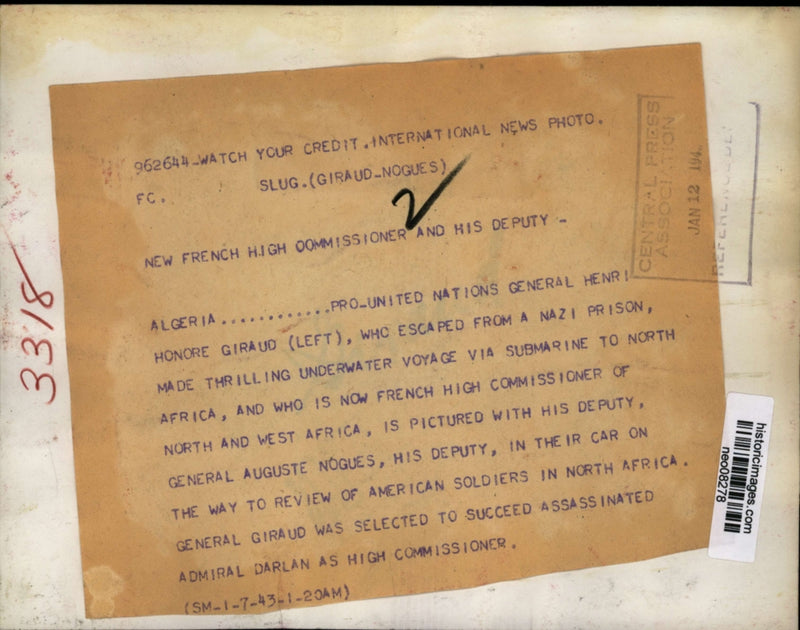 962644-WATCH YOUR CREDIT.INTERNATIONAL NEWS PHOTO.
FC. SLUG.(GIRAUD-NOGUES)
2
NEW FRENCH HIGH COMMISSIONER AND HIS DEPUTY -
ALGERIA............PRO-UNITED NATIONS GENERAL HENRI
HONORE GIRAUD (LEFT), WHO ESCAPED FROM A NAZI PRISON,
MADE THRILLING UNDERWATER VOYAGE VIA SUBMARINE TO NORTH
AFRICA, AND WHO IS NOW FRENCH HIGH COMMISSIONER OF
NORTH AND WEST AFRICA, IS PICTURED WITH HIS DEPUTY,
GENERAL AUGUSTE NOGUES, HIS DEPUTY, IN THEIR CAR ON
THE WAY TO REVIEW OF AMERICAN SOLDIERS IN NORTH AFRICA.
GENERAL GIRAUD WAS SELECTED TO SUCCEED ASSASSINATED
ADMIRAL DARLAN AS HIGH COMMISSIONER.
(SM-1-7-43-1-20AM)
CENTRAL PRESS
ASSOCIATION
JAN 12 194
3318
historicimages.com
neo08278